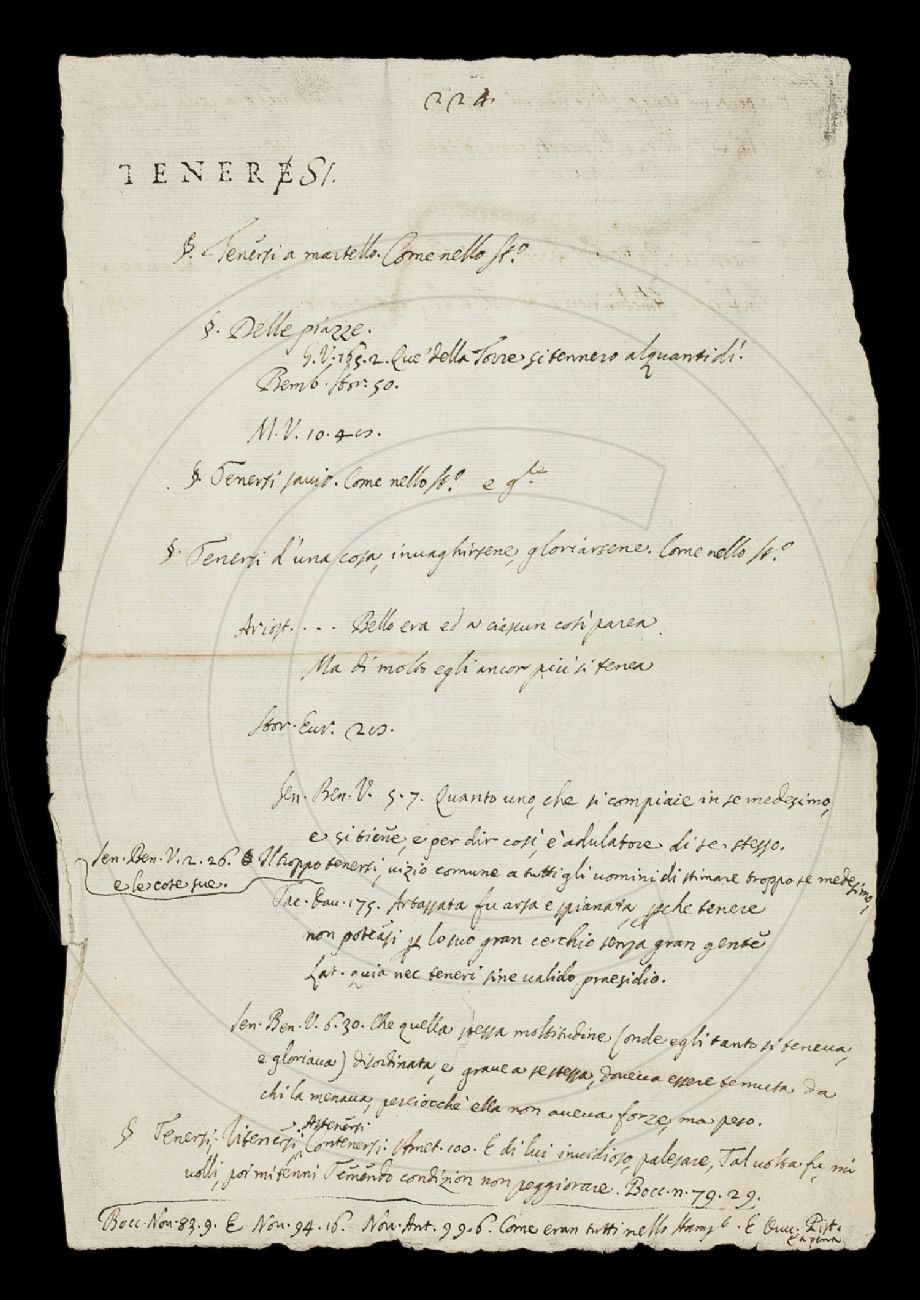 224.
TENERESI.
§. Tenersi a martello. Come nello St.º
§. Delle piazze.
G. V. 165. 2. Que' della Torre si tennero alquanti dì.
Bemb. Stor. 50.
M. V. 10. 40.
§. Tenersi savio. Come nello St.º e
§. Tenersi d'una cosa, invaghirsene, gloriarsene. Come nello St.º
Ariost. . . . Bello era ed a ciascun così parea
Ma di molto egli ancor più si tenea
Stor. Eur. 20.
Sen. Ben. V. 5. 7. Quanto uno, che si compiaie in se medesimo,
e si tiene, e per dir così, è adulatore di se stesso.
Sen. Ben. V. 2. 26. Il troppo tenersi, vizio comune a tutti gli uomini di stimare troppo se medesimo,
e le cose sue.
Tac. Dav. 175. Artassata fu arsa e spianata, perche tenere
non poteasi per lo suo gran cerchio senza gran gente
Lat. quia nec teneri sine valido praesidio.
Sen. Ben. V. 6. 30. Che quella stessa moltitudine (onde egli tanto si teneva,
e gloriava) disordinata, e grave a se stessa, doveva essere tenuta da
chi la menava, perciocchè ella non aveva forze, ma peso.
Astenersi
§ Tenersi, Ritenersi, Contenersi. Amet. 100. E di lui invidioso, palesare, Tal volta fu, mi
volli, poi mi tenni Temendo condizion non peggiorare. Bocc. n. 79. 29.
Bocc. Nov. 83. 9. E Nov. 94. 16. Nov. Ant. 99. 6. Come eran tutti nello Stamp.º E Pist.